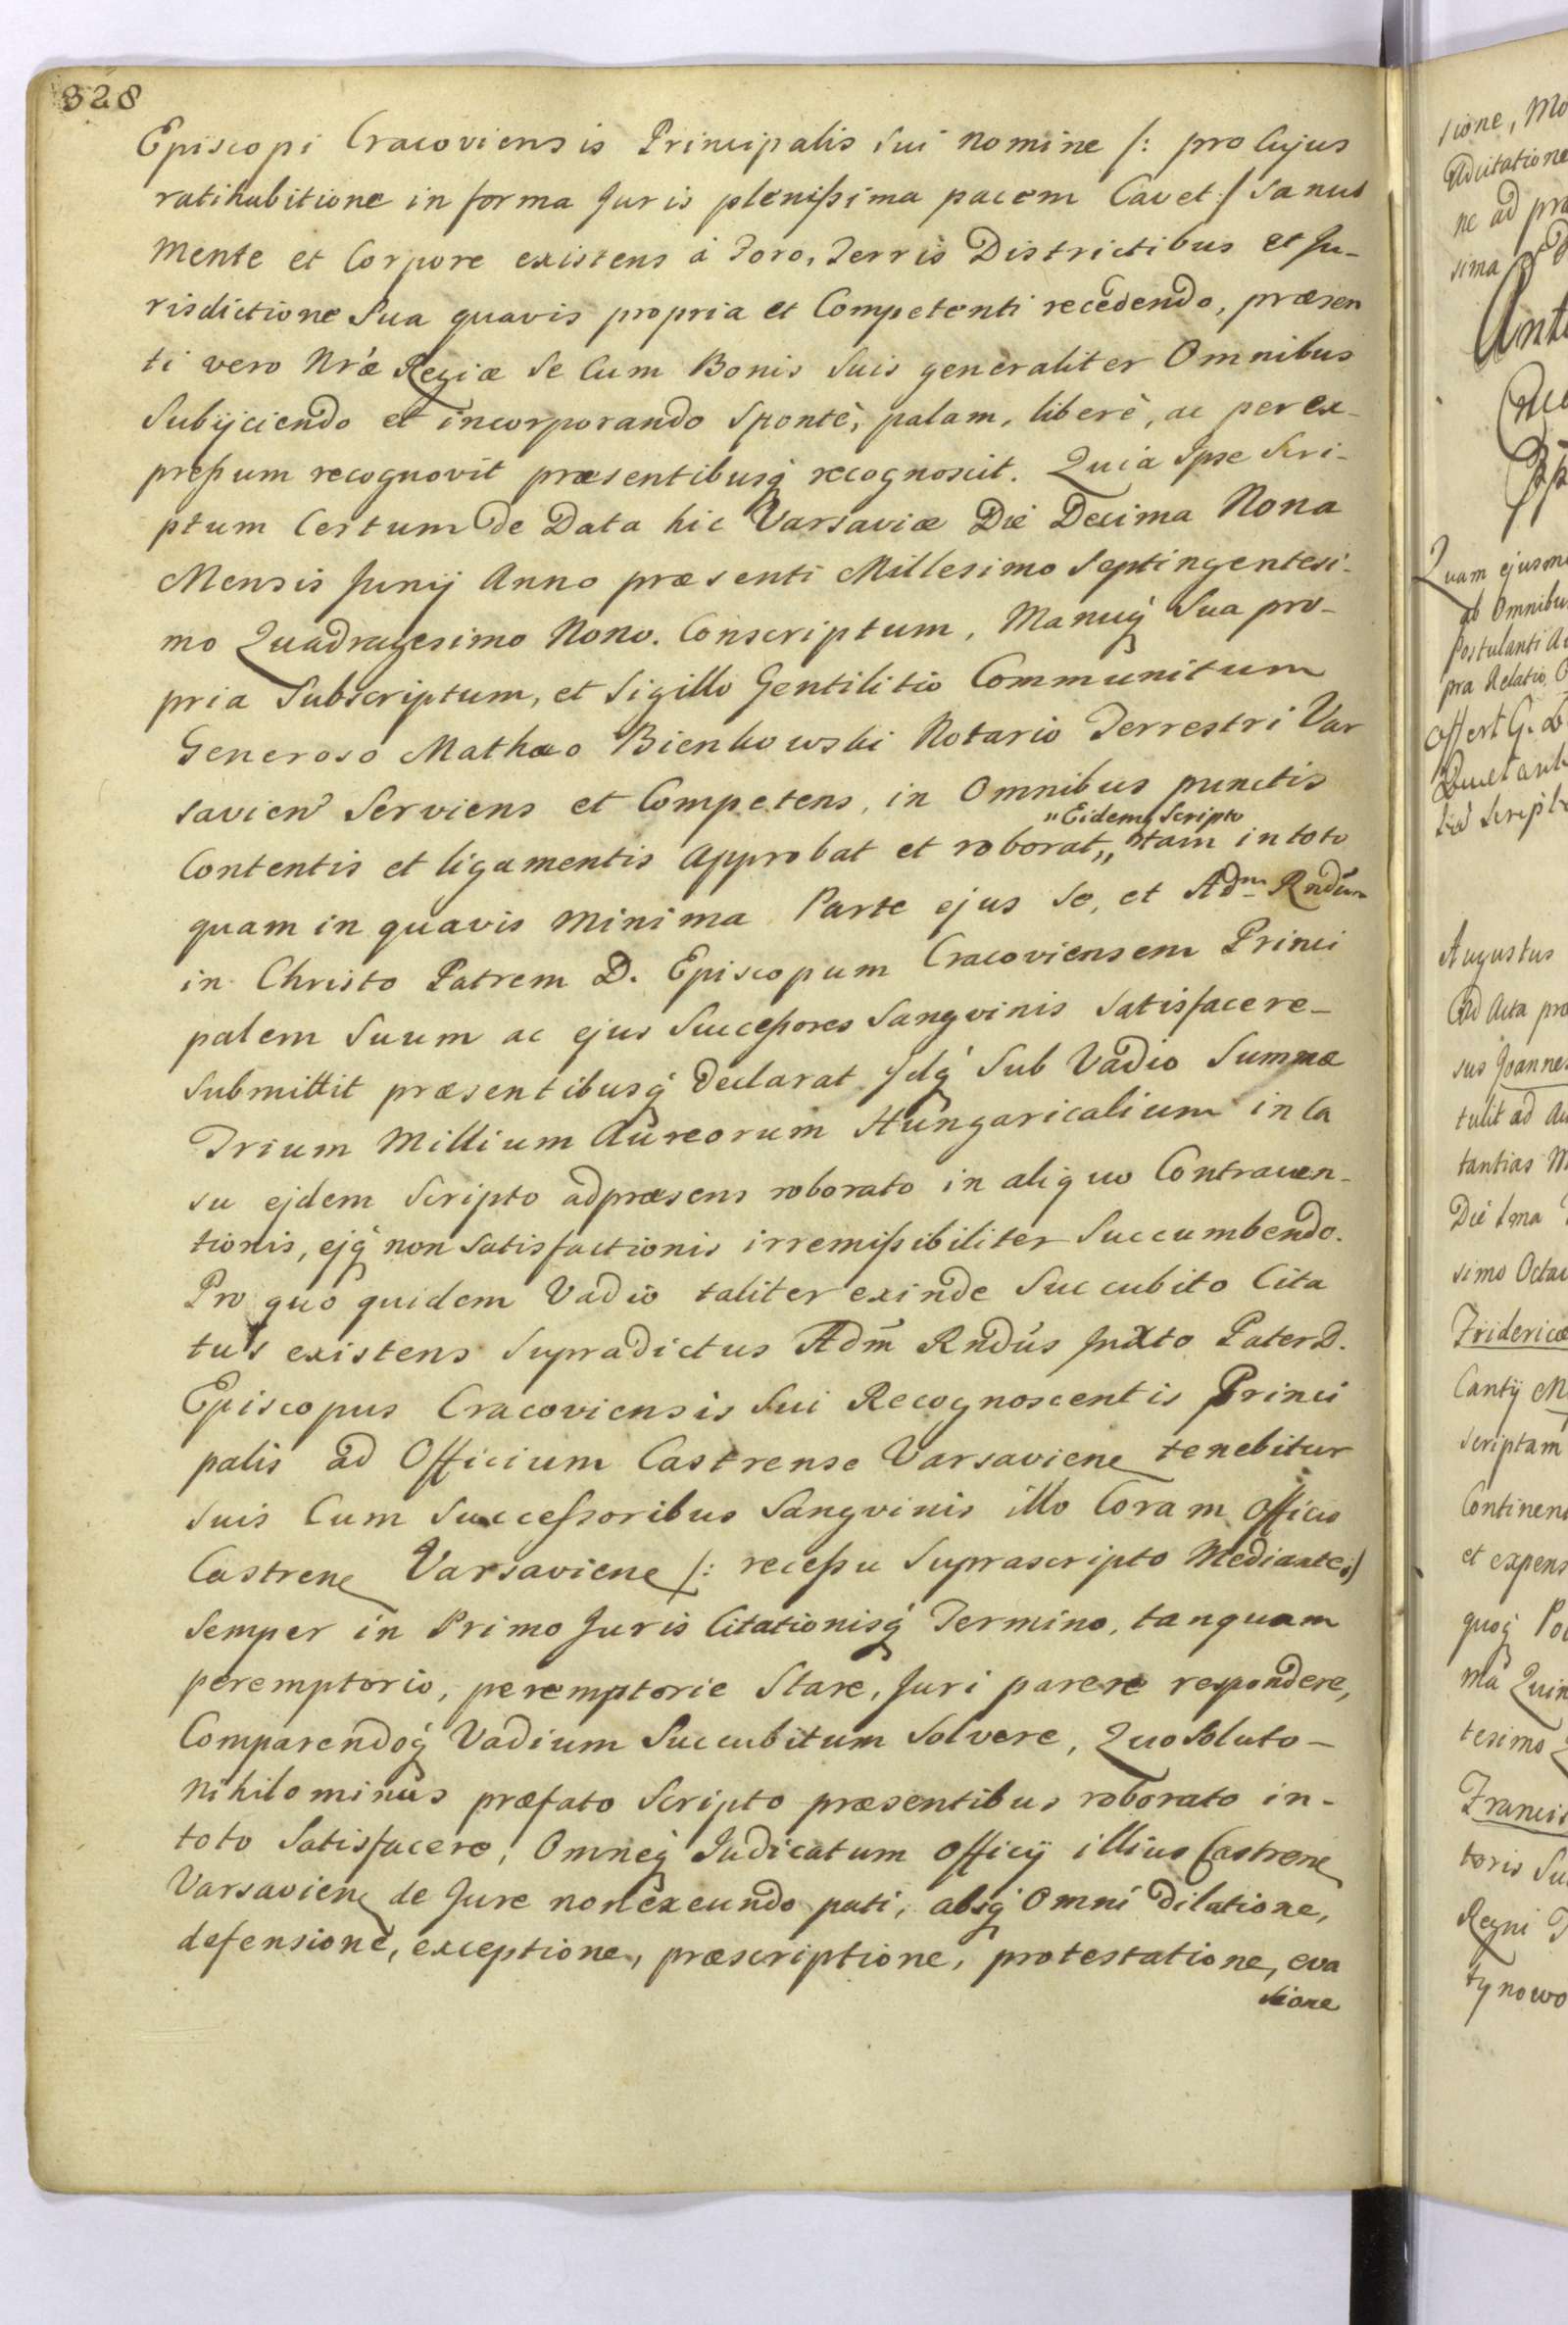 328
Episcopi Cracoviensis Principalis sui nomine /: pro Cujus
ratihabitione in forma Juris plenissima pacem Cavet :/ Sanus
Mente et Corpore existens à Foro, Terris Districtibus et Ju-
risdictione Sua quavis propria et Competenti recedendo, præsen
ti vero Nræ Regiæ Se Cum Bonis Suis generaliter Omnibus
Subijciendo et incorporando Spontè, palam, liberè, ac per ex-
pressum recognovit præsentibusq́ recognoscit. Quia Ipse Scri-
ptum Certum de Data hic Varsaviæ Die Decima Nona
Mensis Junij Anno præsenti Millesimo Septingentesi-
mo Quadragesimo Nono. Conscriptum, Manuq́ Sua pro-
pria Subscriptum, et Sigillo Gentilitio Communitum
Generoso Mathæo Bienkowski Notario Terrestri Var
savien Serviens et Competens, in Omnibus punctis
"Eidemq́ Scripto
Contentis et ligamentis Approbat et roborat,, tam in toto
quam in quavis Minima Parte ejus Se, et Adm Rndum
in Christo Patrem D. Episcopum Cracoviensem Princi
palem Suum ac ejus Successores Sangvinis Satisfacere-
Submittit præsentibusq́ Declarat Idq́ Sub Vadio Summæ
Trium Millium Aureorum Hungaricalium in Ca
su ejdem Scripto adpræsens roborato in aliquo Contraven-
tionis, ejq́ non Satisfactionis irremissibiliter Succumbendo.
Pro quo quidem Vadio taliter exinde Succubito Cita
tus existens Supradictus Adm Rndus In Xto Pater D.
Episcopus Cracoviensis Sui Recognoscentis Princi
palis ad Officium Castrense Varsaviene tenebitur
Suis Cum Successoribus Sangvinis illo Coram Officio
Castrene Varsaviene /: recessu Suprascripto Mediante :/
Semper in Primo Juris Citationisq́ Termino, tanquam
peremptorio, peremptorie Stare, Juri parere respondere,
Comparendoq́ Vadium Succubitum Solvere, Quo Soluto-
Nihilominus præfato Scripto præsentibus roborato in-
toto Satisfacere, Omneq́ Judicatum Officij illius Castrene
Varsaviene de Jure non exeundo pati, absq́ Omni Dilatione,
defensione, exceptione, præscriptione, protestatione, eva
sione
sione, Mo
ne ad præ
sima
Quam ejusmo
ab Omnibu
Postulanti
pra Relatio
Offert G.
Augustus
Ad Acta pro
sus Joannes
tulit ad
tantias
Die Ima
simo Octa
Fridericæ
Cantij
scriptam
Continen
et expens
quoq́
ma Quin
tesimo
Francis
toris Su
Regni
tynowo